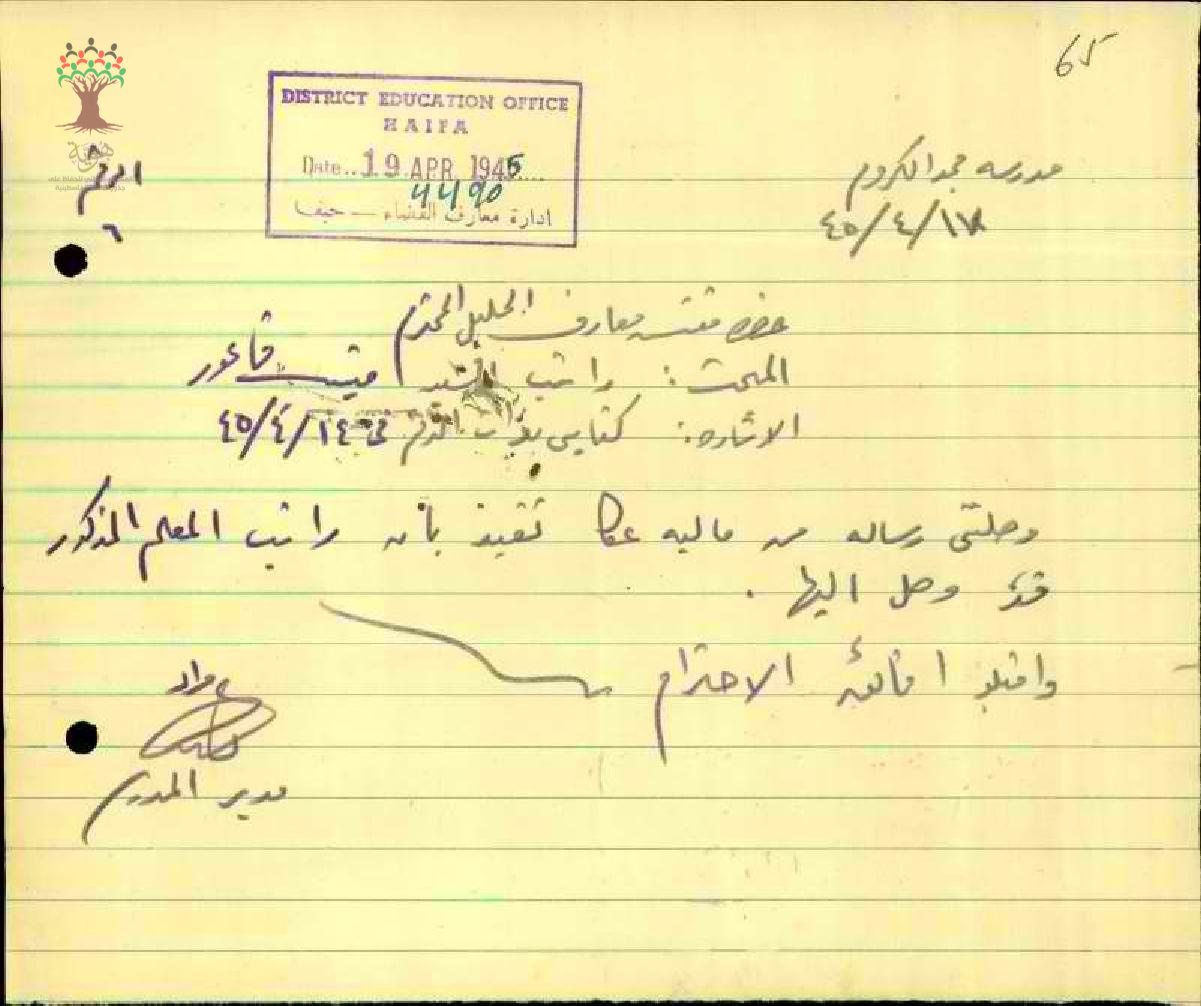 65
DISTRICT EDUCATION OFFICE
HAIFA
Date..19 APR 1945....
4490
ادارة معارف القضاء — حيفا
الرقم
٦
مدرسه مجد الكروم
٤٥/٤/١٧
حضره مفتش معارف الجليل المحترم
المبحث: راتب السيد قاعور
الاشاره: كتابي بذات الرقم ٤٥/٤/١٤
وصلتني رساله من ماليه عكا تفيد بأن راتب المعلم المذكور
قد وصل اليها .
واقبلو فائق الاحترام
مدير المدرسه